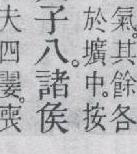 氣。其餘各
於壙中。按
子八。諸侯
大四翣。喪